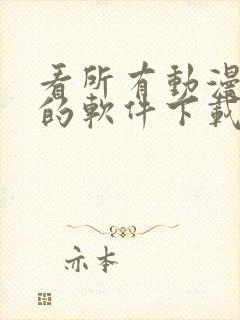 看所有動漫
的軟件下載
亦本